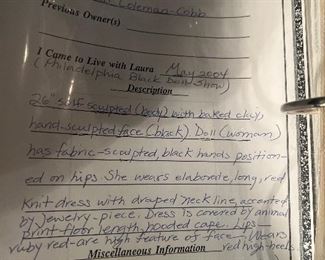 Coleman-Cobb
Previous Owner(s)
I Came to Live with Laura May 2004
(Philadelphia Black Doll Show)
Description
26" soft sculpted (body) with baked clay,
hand-sculpted face (black) Doll (woman)
has fabric-sculpted, black hands position-
ed on hips. She wears elaborate, long, red
Knit dress with draped neck line, accented
by jewelry-piece. Dress is covered by animal
print-floor length, hooded cape. Lips
ruby red-are high feature of face. Wears
Miscellaneous Information red high-heels